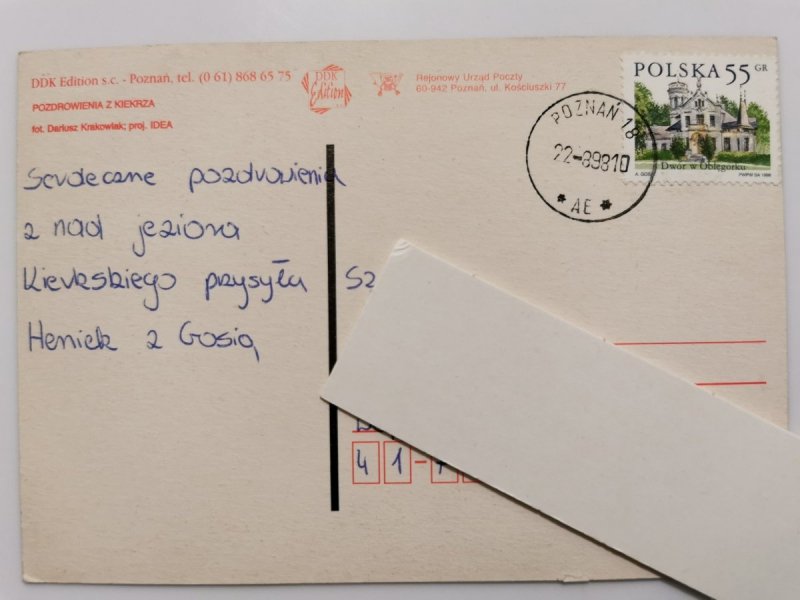 DDK Edition s.c. - Poznań, tel. (0 61) 868 65 75
DDK
Edition
Rejonowy Urząd Poczty
60-942 Poznań, ul. Kościuszki 77
POZDROWIENIA Z KIEKRZA
fot. Dariusz Krakowiak; proj. IDEA
POLSKA 55 GR
Dwór w Oblęgorku
PWPW SA 1998
POZNAŃ 18
22-89810
* AE *
Serdeczne pozdrowienia
z nad jeziora
Kierskiego przysyła
Heniek z Gosią
Sz
4 1 -